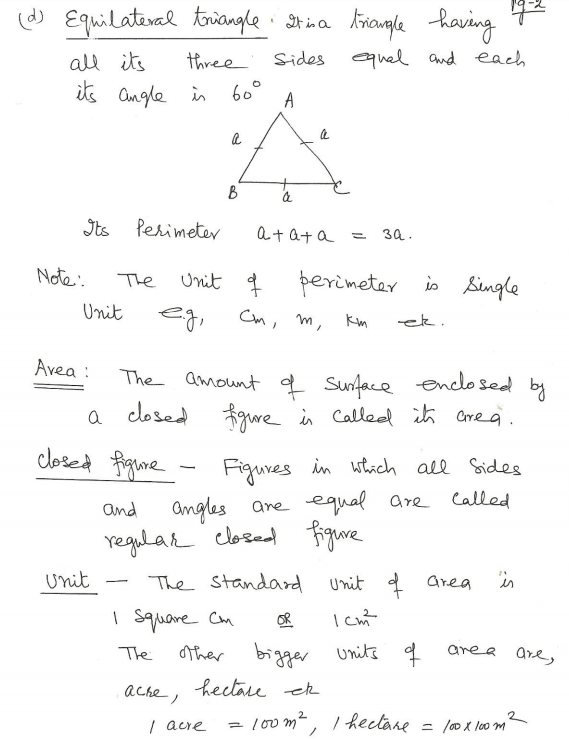 Pg-2
(d) Equilateral triangle. It is a triangle having
all its three sides equal and each
its angle is 60°
A
a a
B a C
Its Perimeter a+a+a = 3a.
Note: The Unit of perimeter is Single
Unit e.g, Cm, m, Km etc.
Area: The amount of Surface enclosed by
a closed figure is called its area.
Closed figure – Figures in which all Sides
and angles are equal are called
regular closed figure
Unit – The Standard unit of area is
1 Square Cm OR 1 cm²
The other bigger units of area are,
acre, hectare etc
1 acre = 100 m², 1 hectare = 100 x 100 m²